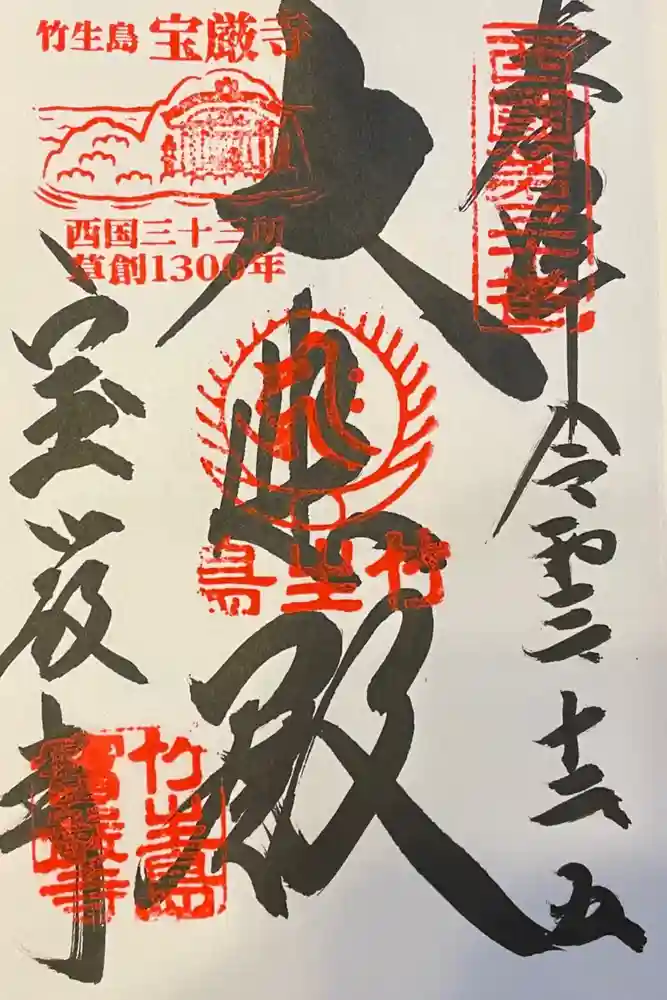 奉拝
令和三
十二
五
西国第三十番
大悲殿
竹生島
宝厳寺
竹生島 宝厳寺
西国三十三所
草創1300年
竹生島
寶厳寺